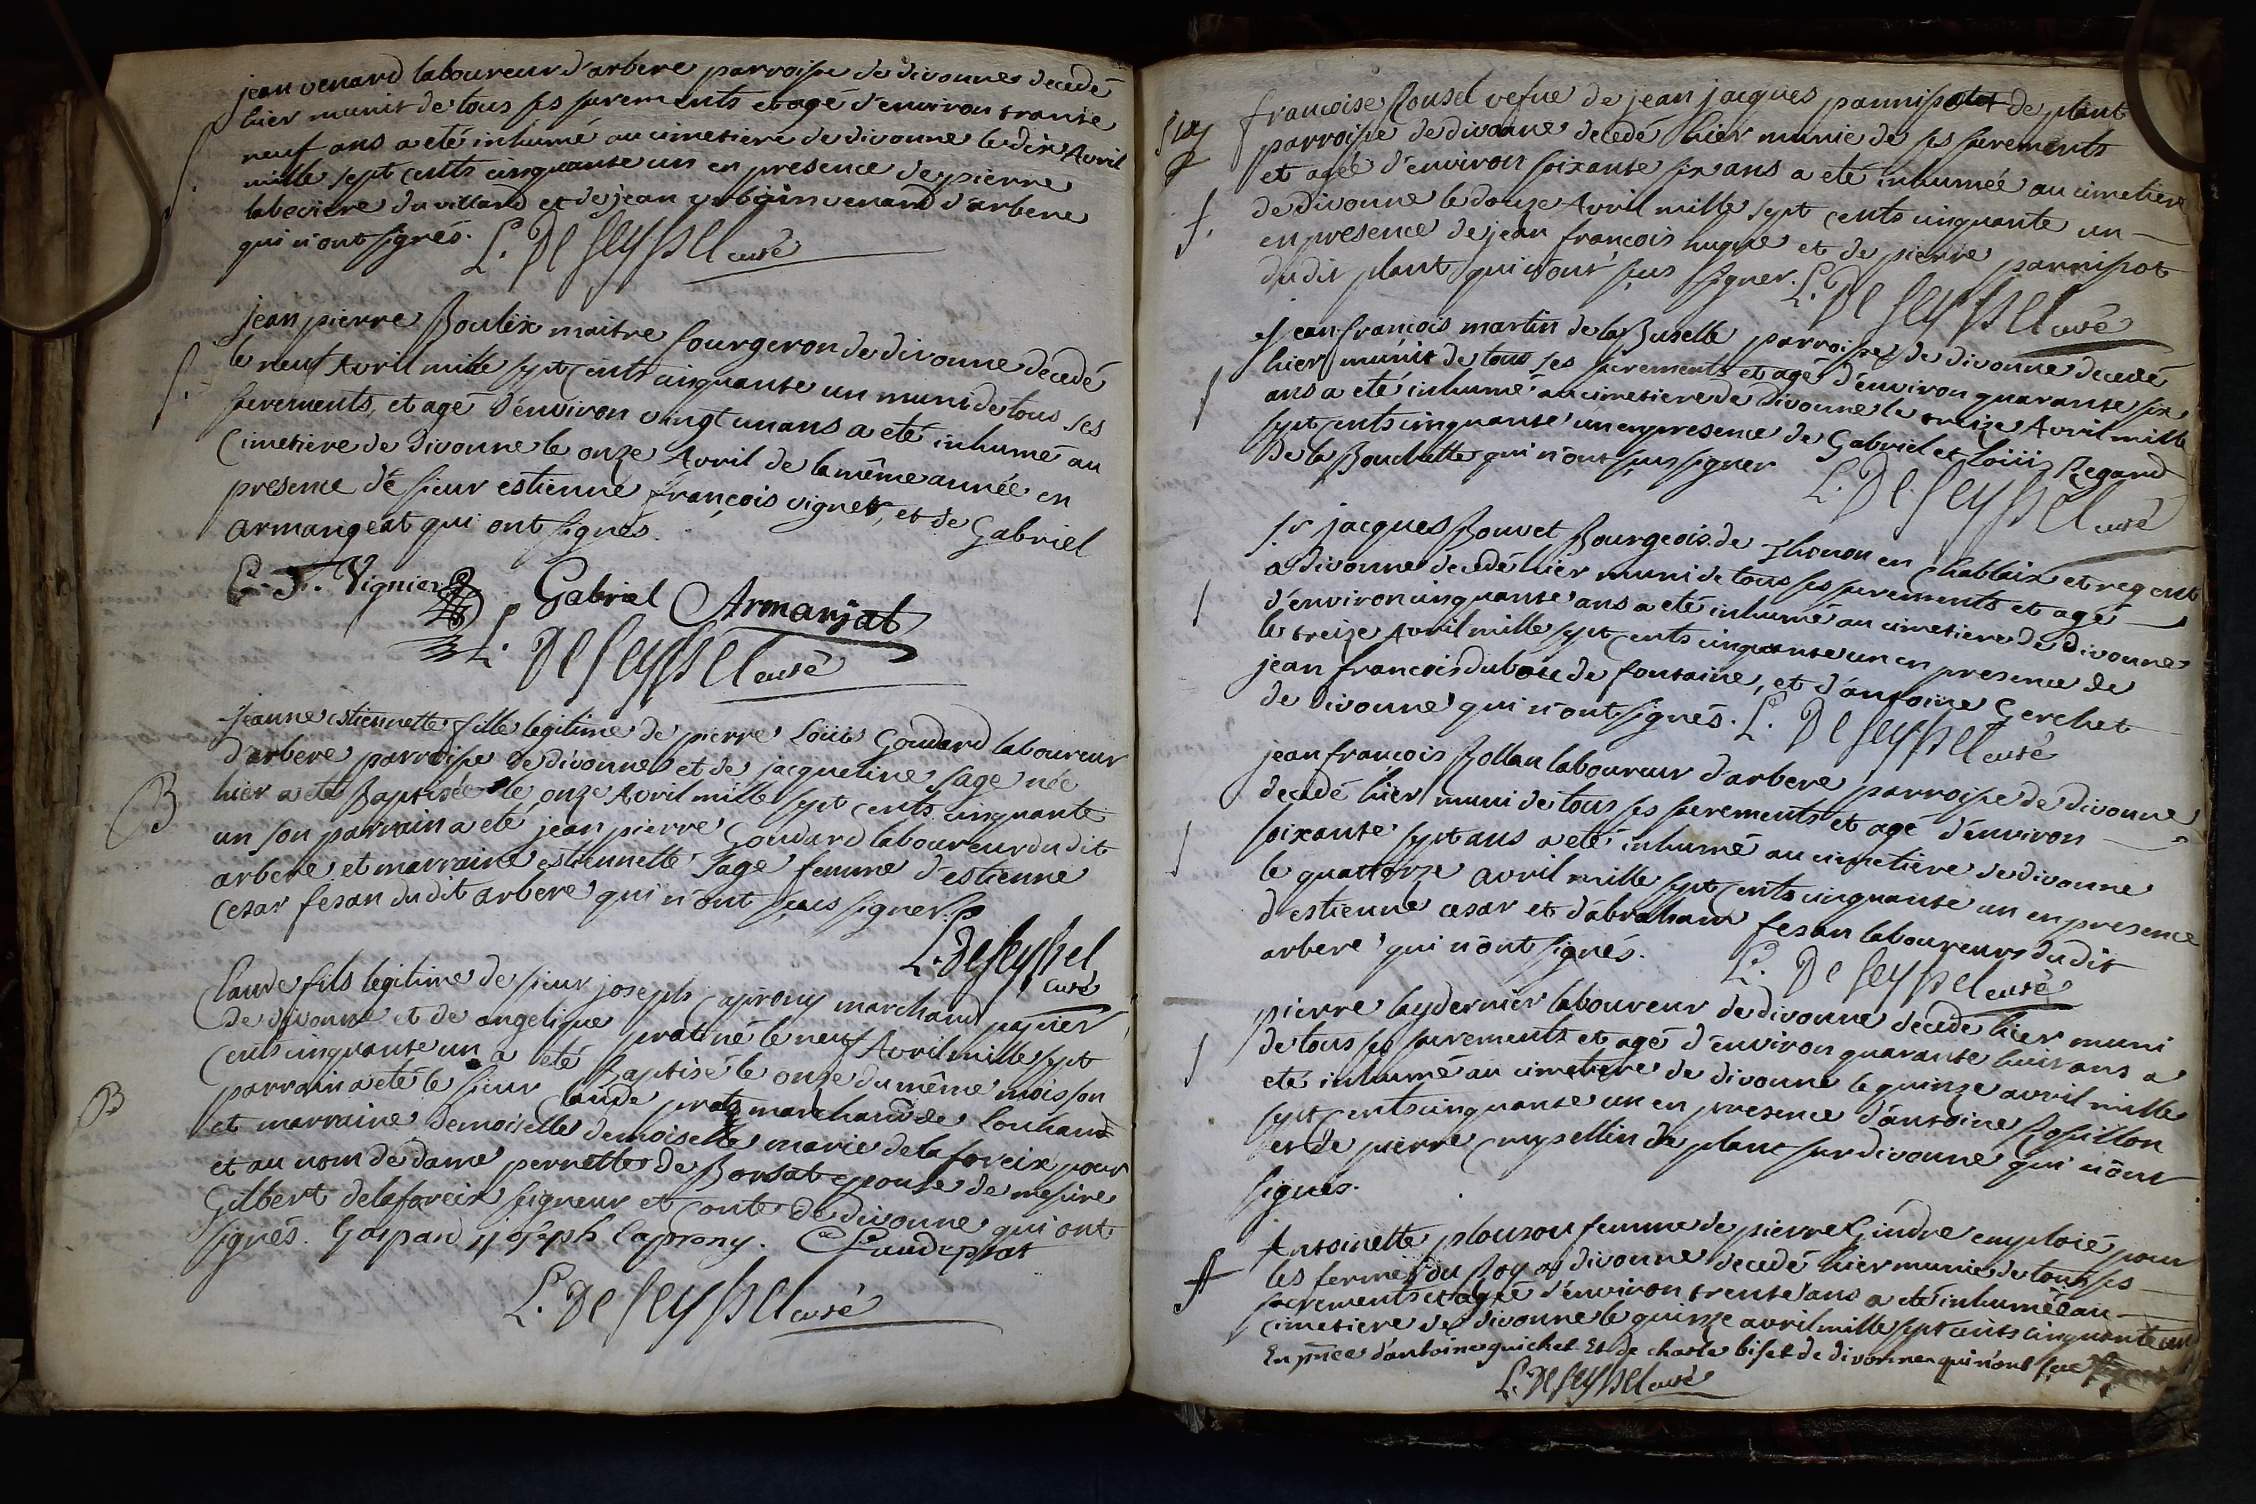 jean venard laboureur d'arbere parroisse de divonne decedé
hier munit de tous ses sacrements et agé d'environ trante
neuf ans a eté inhumé au cimetiere de divonne le dix Avril
mille sept cents cinquante un en presence de pierre
labeviere du villard et de jean urbain venard d'arbere
qui n'ont signés. L. De Seyssel curé
jean pierre Boulix maitre fourgeron de divonne decedé
le neuf Avril mille sept cents cinquante un muni de tous ses
sacrements, et agé d'environ vingt un ans a eté inhumé au
Cimetiere de divonne le onze Avril de la même année en
presence de sieur estienne françois vignier, et de Gabriel
armangeat qui ont signés.
E. F. Vignier Gabriel Armanjat
L. De Seyssel curé
Jeanne estiennette fille legitime de pierre Loüis Goudard laboureur
d'arbere parroisse de divonne et de jacqueline sage née
B hier a eté Baptisée le onze Avril mille sept cents cinquante
un son parrain a eté jean pierre Goudard laboureur dudit
arbere et marraine estiennette sage femme d'estienne
Cezar fesan dudit arbere qui n'ont sçus signer.
L. De Seyssel
curé
Claude fils legitime de sieur joseph Caprony marchand papier
de divonne et de angelique prat né le neuf Avril mille sept
cents cinquante un a eté Baptisé le onze du même mois son
B parrain a eté le sieur Claude prat marchand de Louhand
et marraine demoiselle demoiselle marie delaforeix pour
et au nom de dame pernette de Borsat epouse de messire
Gilbert delaforeix seigneur et Conte de divonne qui ont
signés. Gaspard joseph Caprony. Claude prat
L. De Seyssel curé
francoise Rousel vefue de jean jacques pannissot de plant
parroisse de divonne decedé hier munie de ses sacrements
et agée d'environ soixante six ans a eté inhumée au cimetiere
de divonne le douze Avril mille sept cents cinquante un
en presence de jean françois hugue et de pierre pannissot
du dit plant qui n'ont sçus signer. L. De Seyssel curé
jean françois martin de la Buselle parroisse de divonne decedé
hier munit de tous ses sacrements et agé d'environ quarante six
ans a eté inhumé au cimetiere de divonne le treize Avril mille
sept cents cinquante un en presence de Gabriel et Loüis Regard
De la Bouchette qui n'ont sçus signer L. De Seyssel curé
sr jacques Bouvet Bourgeois de Thonon en Chablaix et regent
a divonne decedé hier muni de tous ses sacrements et agé
d'environ cinquante ans a eté inhumé au cimetiere de divonne
le treize Avril mille sept cents cinquante un en presence de
jean francois duboue de fontaine, et d'antoine Gerchet
de divonne qui n'ont signés. L. De Seyssel curé
jean françois Rollan laboureur d'arbere parroisse de divonne
decedé hier muni de tous ses sacrements et agé d'environ
soixante sept ans a eté inhumé au cimetiere de divonne
le quattorze avril mille sept cents cinquante un en presence
d'estienne cesar et d'abraham fesan laboureurs dudit
arbere qui n'ont signés. L. De Seyssel curé
pierre laydernier laboureur de divonne decedé hier muni
de tous ses sacrements et agé d'environ quarante huit ans a
eté inhumé au cimetiere de divonne le quinze avril mille
sept cents cinquante un en presence d'antoine Rossillon
et de pierre crepellin de plant sur divonne qui n'ont
signés.
Antoinette plouson femme de pierre Gindre emploié pour
les fermes du Roy a divonne decedé hier munie de tous ses
sacrements et agée d'environ trente ans a eté inhumée au
cimetiere de divonne le quinze avril mille sept cents cinquante un
En pnce d'antoine guichet Et de charle biset de divonne qui n'ont sçu
L. De Seyssel curé